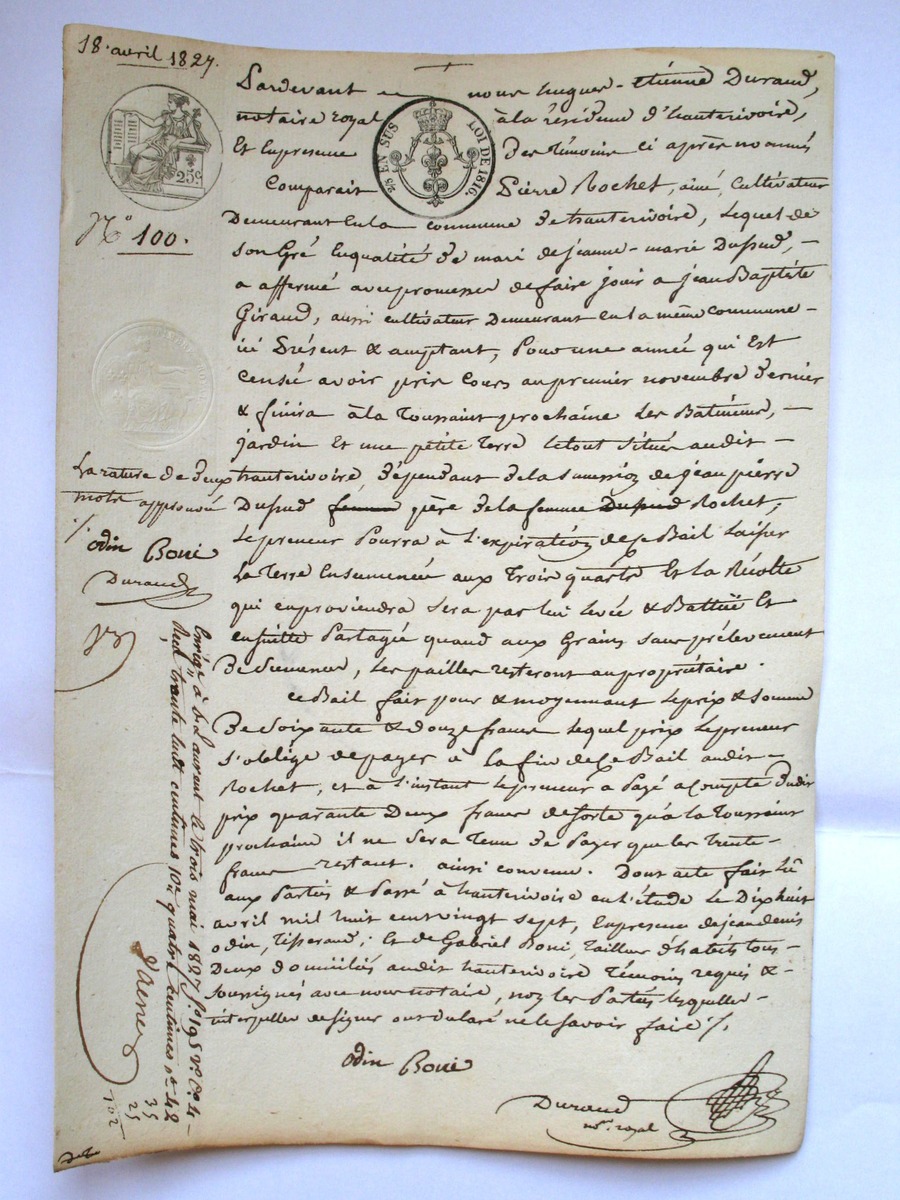 18. avril 1827.
Pardevant nous hugues-étienne Durand,
notaire royal à la résidence d'hauterivoire,
Et Enpresence des témoins ci après nommés
Comparait Pierre Rochet, ainé, Cultivateur
Demeurant Enla commune de hauterivoire, Lequel de
son Gré Enqualité de mari de jeanne-marie Dupud, -
a affermé avecpromesse de faire jouir a jean Baptiste
Giraud, aussi cultivateur Demeurant en la même commune -
ici Présent & acceptant, Pour une année qui Est
Censée avoir pris Cours aupremier novembre dernier
& finira à la Toussaint prochaine Les Batimens, -
jardin Et une petite Terre letout Situés audit -
hauterivoire, dépendant dela succession de jean pierre
Dupud femme père dela femme Dupud Rochet,
Le preneur Pourra à l'expiration dece Bail laisser
La Terre Ensemencée aux Trois quarts Et La Récolte
qui enproviendra sera par lui levée & Battue Et
ensuitte Partagée quand aux Grains sans prélevement
De semence, Les pailles resteront aupropriétaire.
ce Bail fait pour & moyennant Leprix & somme
De soixante & douze francs Lequel prix Lepreneur
s'oblige depayer à la fin dece Bail audit -
Rochet, et à l'instant Lepreneur a Payé acompte dudit
prix quarante Deux francs desorte qu'à la Toussaint
prochaine il ne Sera Tenu de Payer que les Trente -
francs restant. ainsi convenu. Dont acte fait Lû
aux Parties & Passé à hauterivoire en l'étude Le Dix huit
avril mil huit cent vingt sept, Enpresence dejean denis
odin, Tisserand; Et de Gabriel Boni, Tailleur d'habits tous -
Deux domiciliés audit hauterivoire Témoins requis & -
soussignés avec nous notaire, non les Parties lesquelles -
interpellées designer ont declaré ne le savoir faire ./.
odin Boni
Durand
nre. royal
25c.
2/5 EN SUS LOI DE 1816.
No 100.
La rature de deux
mots approuvée
./.
odin Boni
Durand
Enrégé. à St. Laurent le trois mai 1827 fo. 195 vo. Ce. 4 -
Reçu trente huit centimes 10e quatre centimes
42
35
25
102